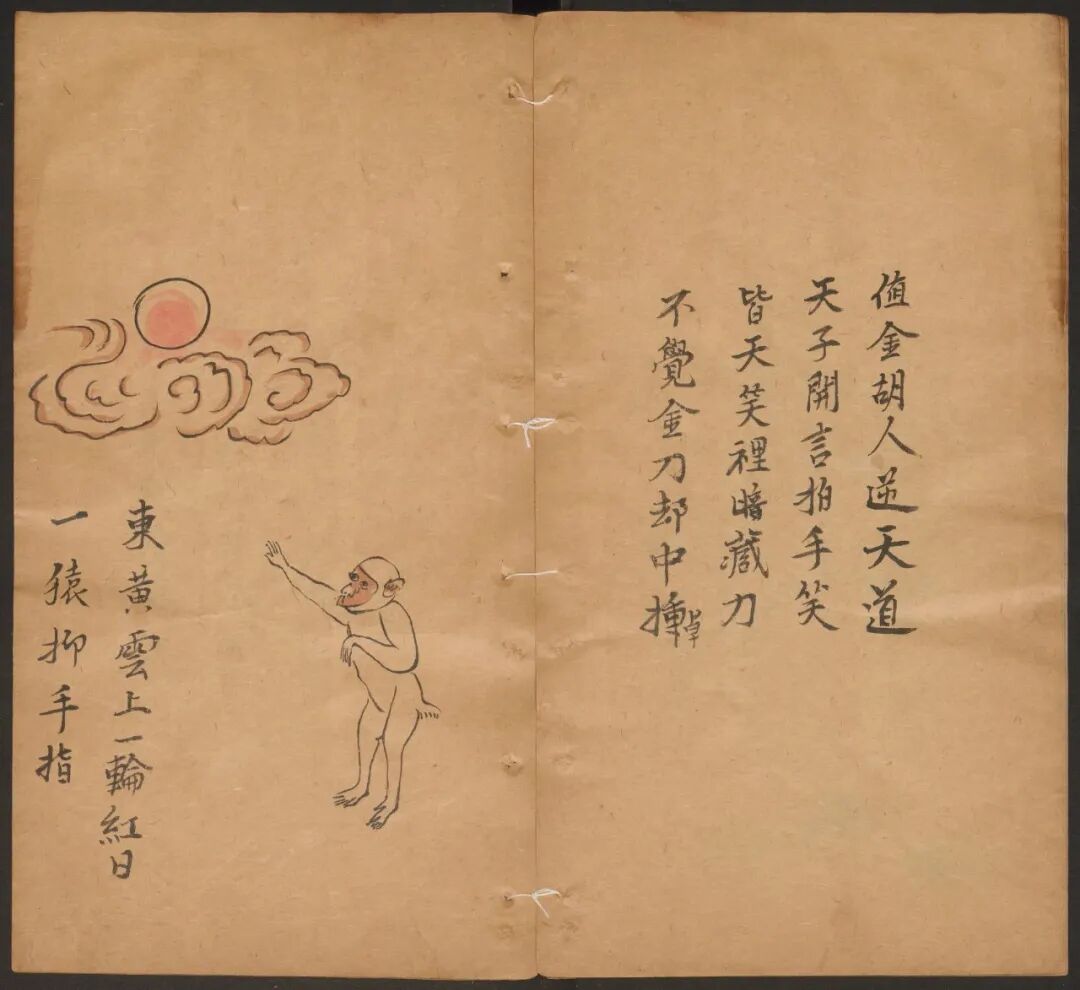 值金胡人逆天道
天子開言拍手笑
皆天笑裡暗藏刀
不覺金刀却中捶
東黄雲上一輪紅日
一猿抑手指